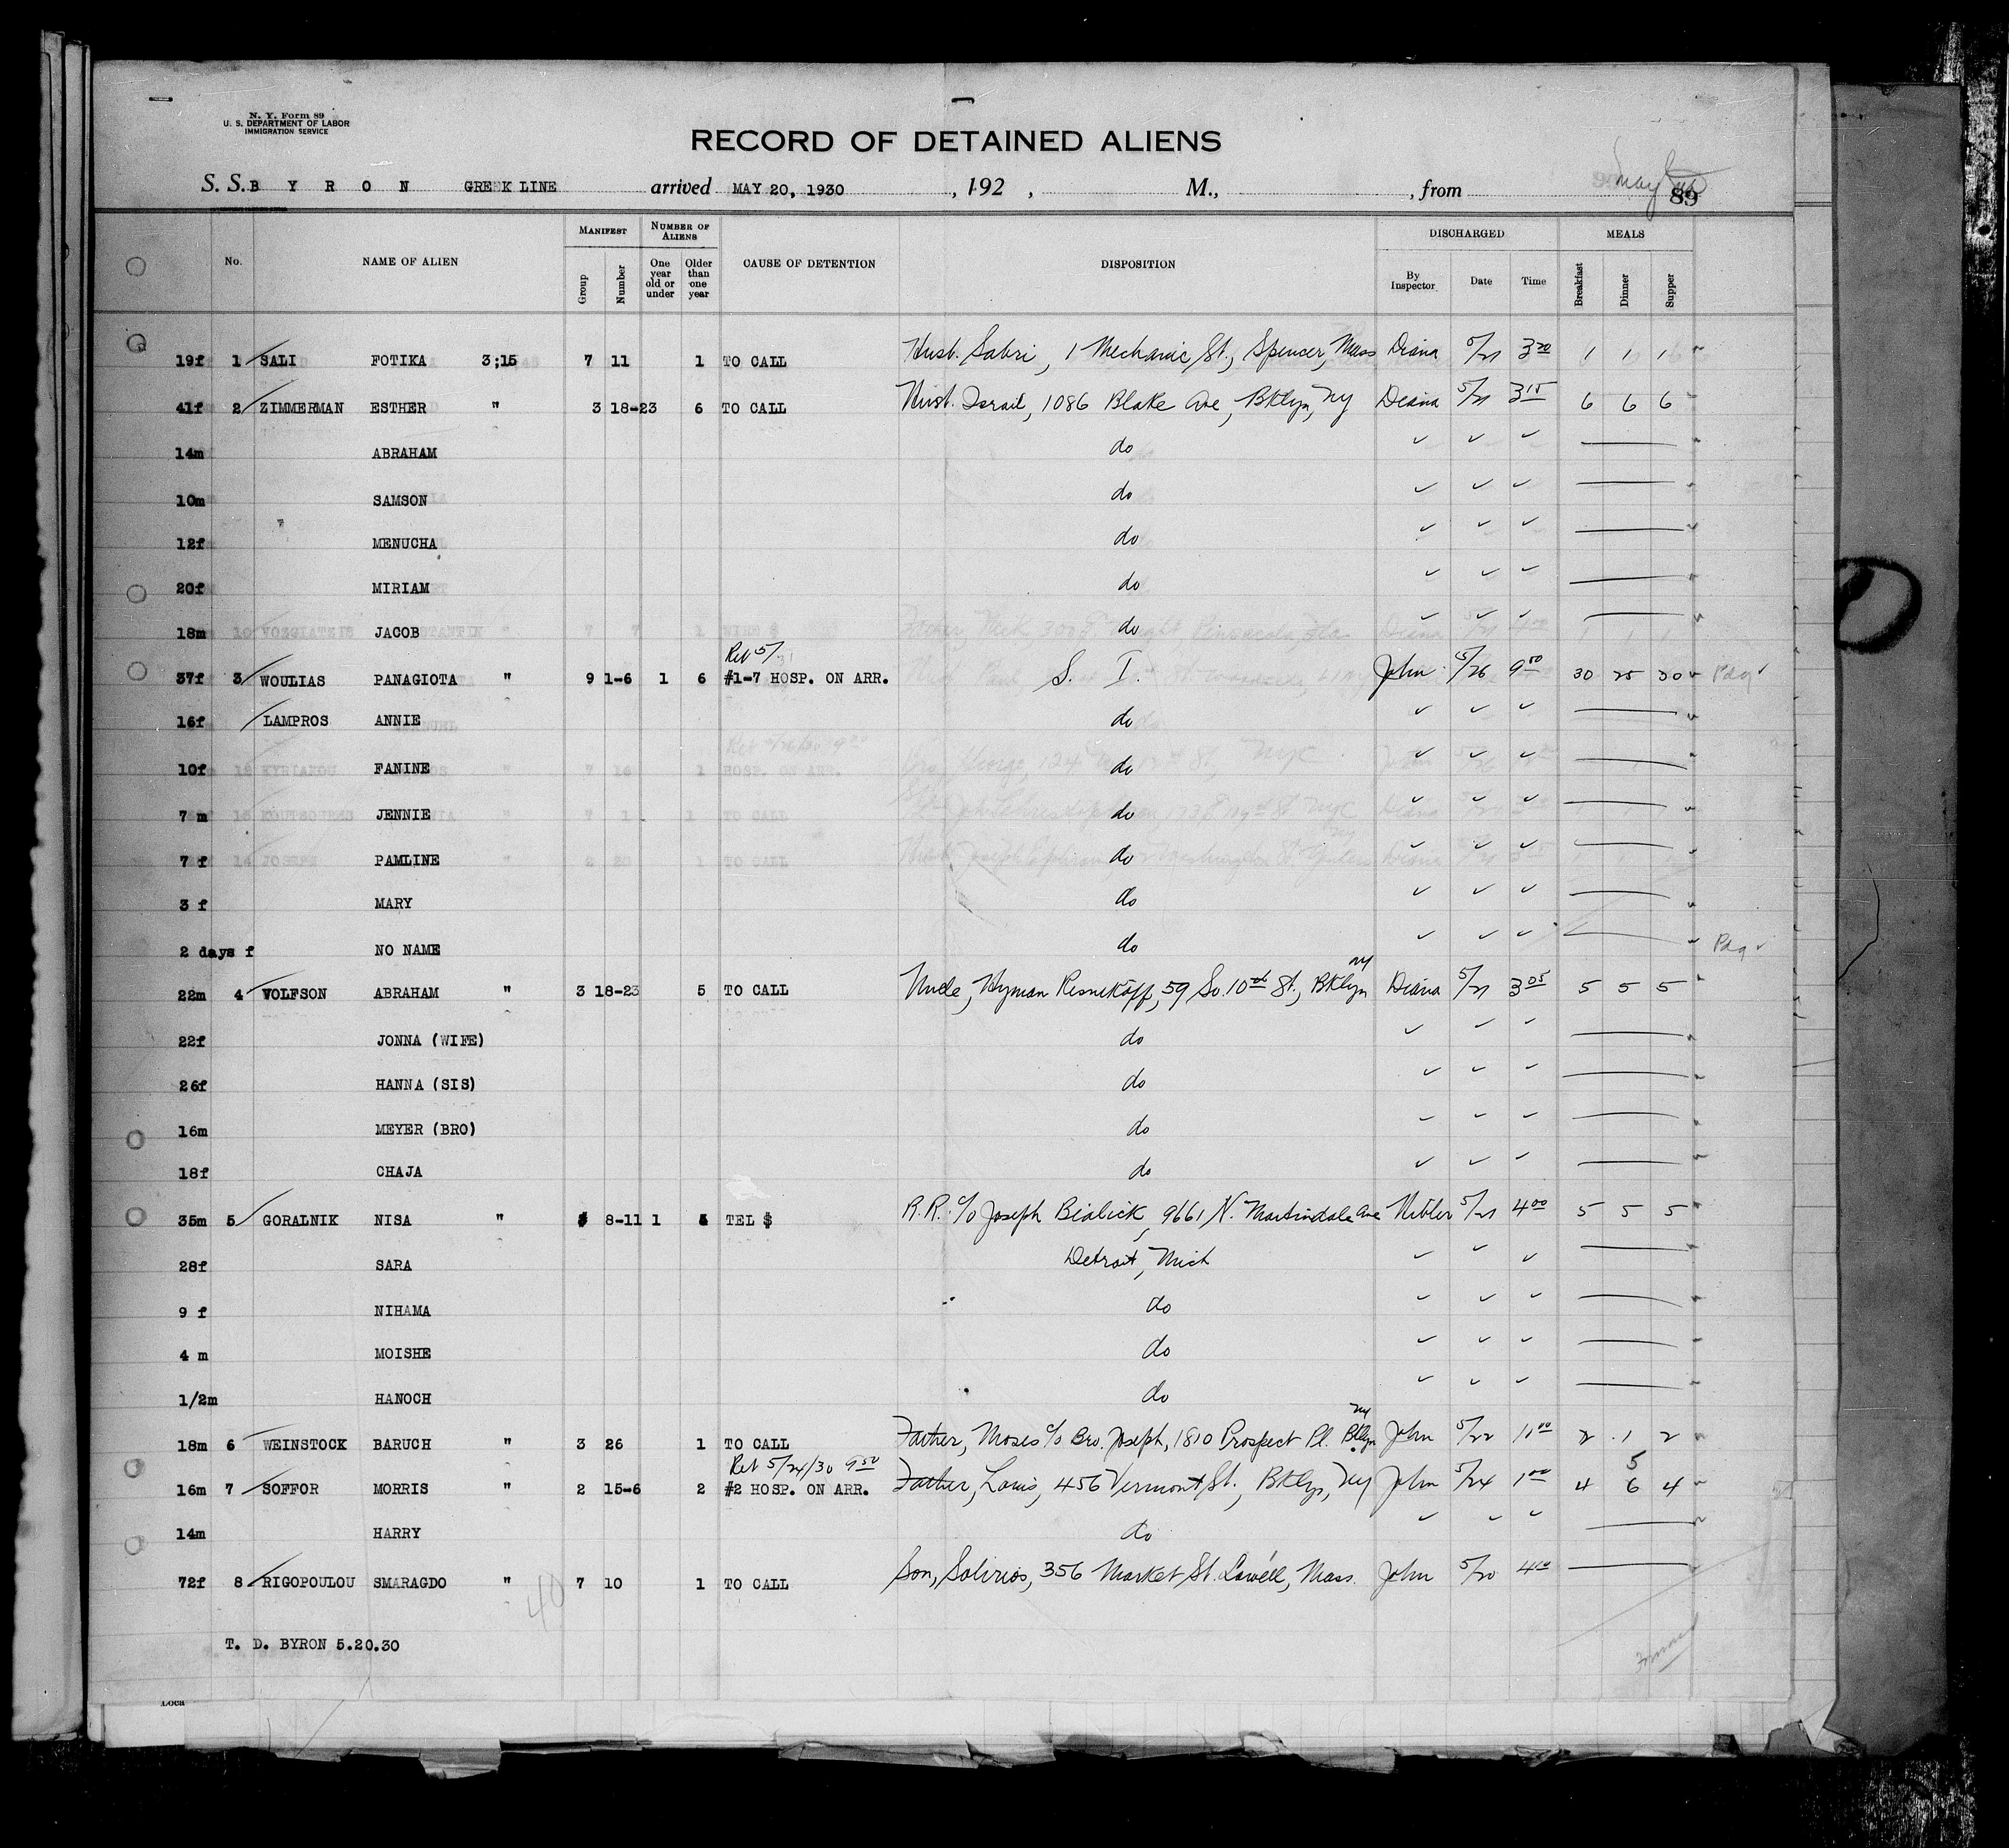 N. Y. Form 89
U. S. DEPARTMENT OF LABOR
IMMIGRATION SERVICE
RECORD OF DETAINED ALIENS
S. S. B Y R O N GREEK LINE arrived MAY 20, 1930, 192 , M., , from 89
No. NAME OF ALIEN MANIFEST Group Number NUMBER OF ALIENS One year old or under Older than one year CAUSE OF DETENTION DISPOSITION DISCHARGED By Inspector Date Time MEALS Breakfast Dinner Supper
19f 1 SALI FOTIKA 3;15 7 11 1 TO CALL Husb. Sabri, 1 Mechanic St., Spencer, Mass Diana 5/21 3 20 1 1 1
41f 2 ZIMMERMAN ESTHER " 3 18-23 6 TO CALL Husb. Israil, 1086 Blake Ave, Bklyn, NY Diana 5/21 3 15 6 6 6
14m ABRAHAM do ✓ ✓ ✓
10m SAMSON do ✓ ✓ ✓
12f MENUCHA do ✓ ✓ ✓
20f MIRIAM do ✓ ✓ ✓
18m JACOB do ✓ ✓ ✓
Ret 5/
37f 3 WOULIAS PANAGIOTA " 9 1-6 1 6 #1-7 HOSP. ON ARR. S. I. John 5/26 9 50 30 25 30 Pdg ✓
16f LAMPROS ANNIE do ✓ ✓ ✓
10f FANINE do ✓ ✓ ✓
7 m JENNIE do ✓ ✓ ✓
7 f PAMLINE do ✓ ✓ ✓
3 f MARY do ✓ ✓ ✓
2 days f NO NAME do ✓ ✓ ✓ Pdg ✓
22m 4 WOLFSON ABRAHAM " 3 18-23 5 TO CALL Uncle, Hyman Resnekoff, 59 So. 10th St., Bklyn NY Diana 5/21 3 05 5 5 5
22f JONNA (WIFE) do ✓ ✓ ✓
26f HANNA (SIS) do ✓ ✓ ✓
16m MEYER (BRO) do ✓ ✓ ✓
18f CHAJA do ✓ ✓ ✓
35m 5 GORALNIK NISA " 8-11 1 TEL $ R.R. c/o Joseph Bialick, 9661 N. Martindale Ave 5/21 4 00 5 5 5
28f SARA Detroit, Mich ✓ ✓ ✓
9 f NIHAMA do ✓ ✓ ✓
4 m MOISHE do ✓ ✓ ✓
1/2m HANOCH do ✓ ✓ ✓
18m 6 WEINSTOCK BARUCH " 3 26 1 TO CALL Father, Moses c/o Bro. Joseph, 1810 Prospect Pl. Bklyn NY John 5/22 11 00 2 1 2
Ret 5/24/30 9 50
16m 7 SOFFOR MORRIS " 2 15-6 2 #2 HOSP. ON ARR. Father, Louis, 456 Vermont St., Bklyn, NY John 5/24 1 00 4 5 6 4
14m HARRY do ✓ ✓ ✓
72f 8 RIGOPOULOU SMARAGDO " 7 10 1 TO CALL Son, Solirios, 356 Market St. Lowell, Mass. John 5/20 4 10
40
T. D. BYRON 5.20.30